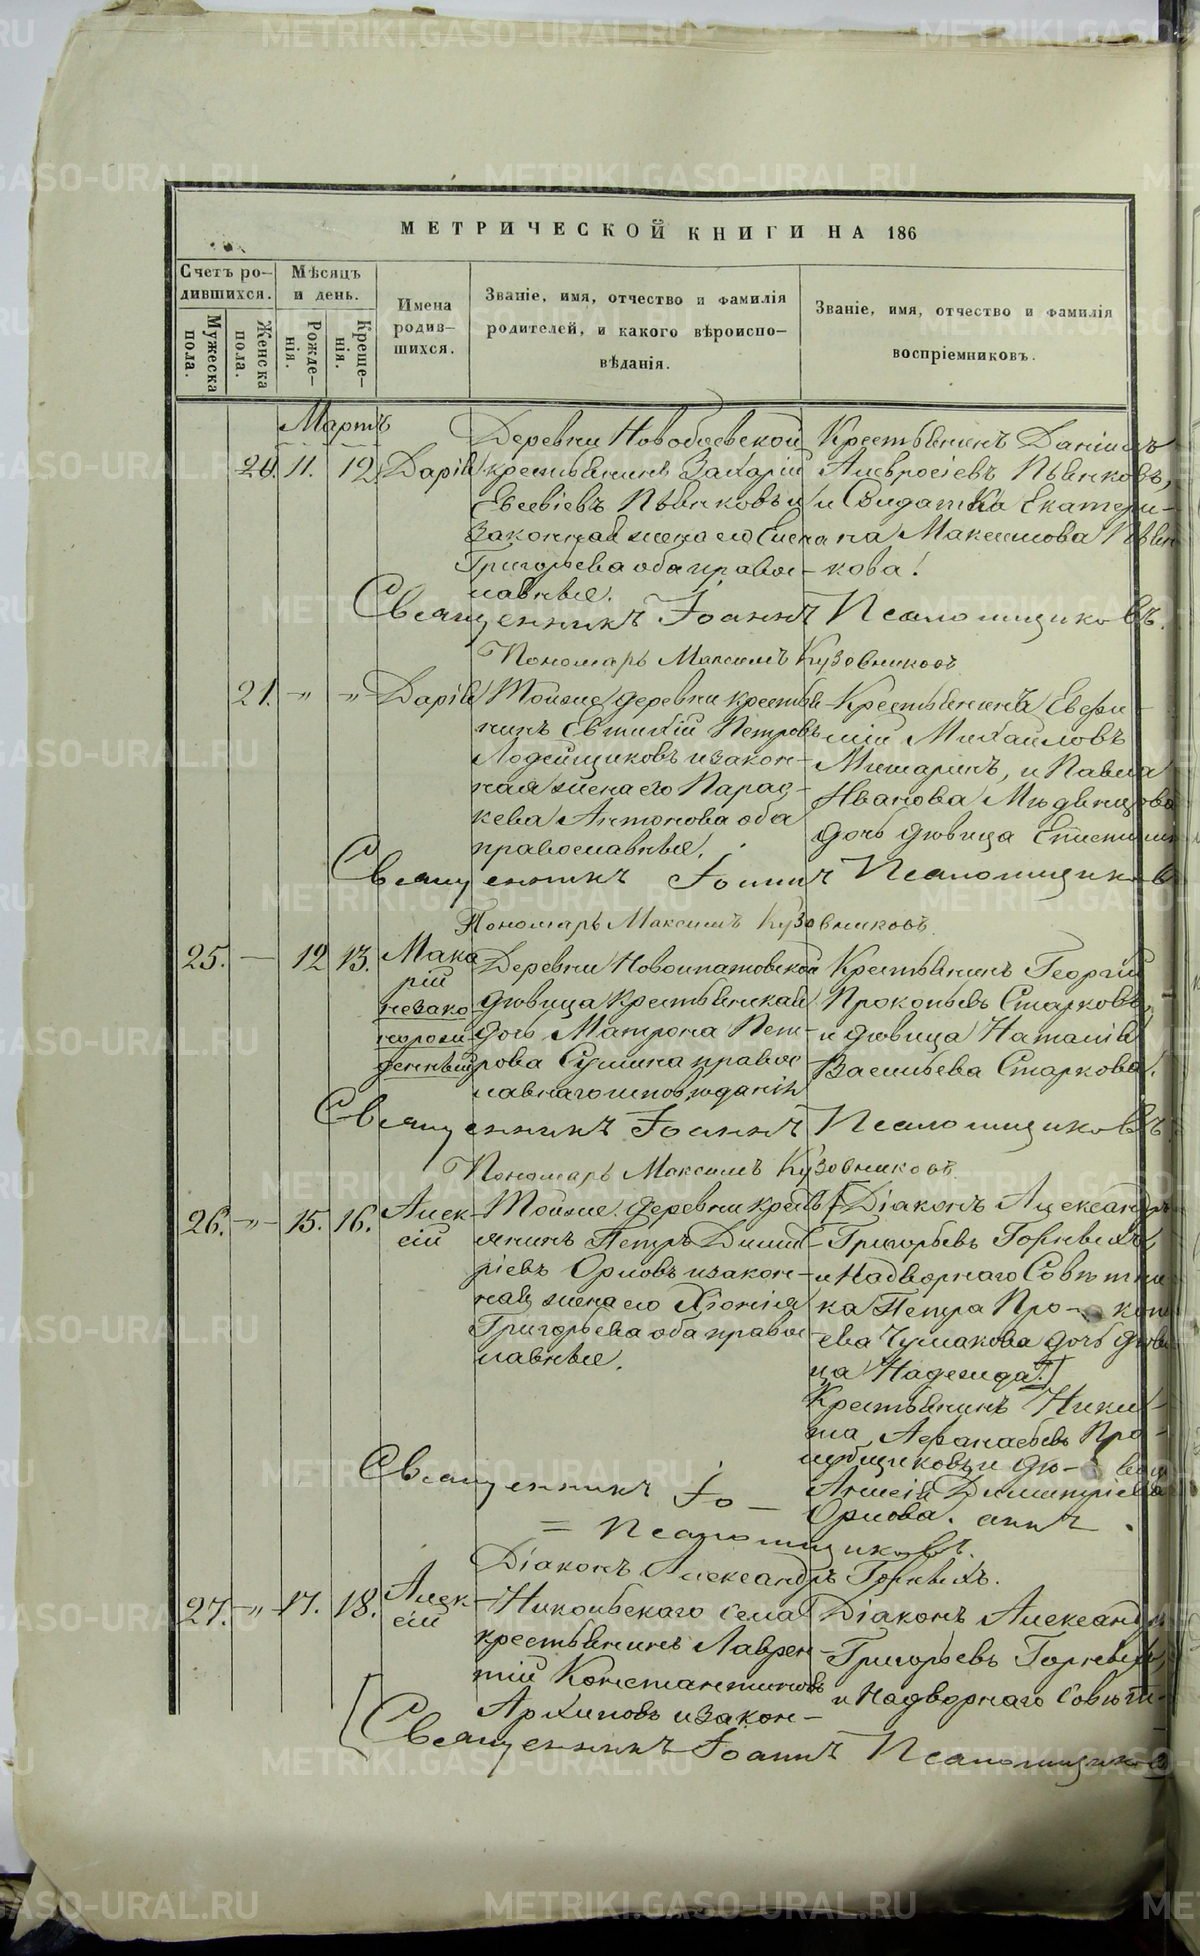 МЕТРИЧЕСКОЙ КНИГИ НА 186
Счетъ ро-
дившихся.
Мѣсяцъ
и день.
Имена
родив-
шихся.
Званіе, имя, отчество и фамилія
родителей, и какого вѣроиспо-
вѣданія.
Званіе, имя, отчество и фамилія
воспріемниковъ.
Мужеска
пола.
Женска
пола.
Рожде-
нія.
Креще-
нія.
Мартъ
20. 11. 12. Дарія
Деревни
крестьянинъ Захарій
Евсевіевъ Пьянковъ и
законная жена его
Григорьева оба правос-
лавные.
Крестьянинъ Даніилъ
Амвросіевъ Пьянковъ,
и Солдатка Екатери-
на Максимова Пьян
кова.
Священникъ Іоаннъ Псаломщиковъ.
Пономарь Максимъ Кузовниковъ
21. -„- -„- Дарія
Тойже деревни крестья-
нинъ Евтихій Петровъ
Лодейщиковъ и закон-
ная жена его Парас-
кева Антонова оба
православные.
Крестьянинъ Евфи-
мій Михайловъ
Мишаринъ, и Павла
Иванова Медвѣдцова
дочь дѣвица
Священникъ Іоаннъ Псаломщиковъ
Пономарь Максимъ Кузовниковъ.
25. — 12 13. Мака
рій
незако
норож
денный
Деревни Новоипатовской
дѣвица крестьянская
дочь Матрона Пет-
рова Сушина правос
лавнаго исповѣданія
Крестьянинъ Георгій
Прокопьевъ Старковъ,
и дѣвица Наталія
Васильева Старкова.
Священникъ Іоаннъ Псаломщиковъ
Пономарь Максимъ Кузовниковъ.
26. -„- 15. 16. Алек-
сій
Тойже деревни крестъ
янинъ Петръ Димит-
ріевъ Орловъ и закон-
ная жена его Хіонія
Григорьева оба правос
лавные.
[Діаконъ Александръ
Григорьевъ Горныхъ,
и Надворнаго Совѣтни
ка Петра Про- коп
ева Чумакова дочь дѣви
ца Надежда.]
Крестьянинъ Ники-
та Аѳанасьевъ Про-
и дѣ- вица
Димитріева
Орлова.
Священникъ Іо- аннъ
= Псаломщиковъ.
Діаконъ Александръ Горныхъ.
27. -„- 17. 18. Алек-
сій
Никольскаго села
крестьянинъ Лаврен-
тій Константиновъ
Архиповъ и закон-
Діаконъ Александръ
Григорьевъ Горныхъ,
и Надворнаго Совѣт-
[Священникъ Іоаннъ Псаломщиковъ
METRIKI.GASO-URAL.RU